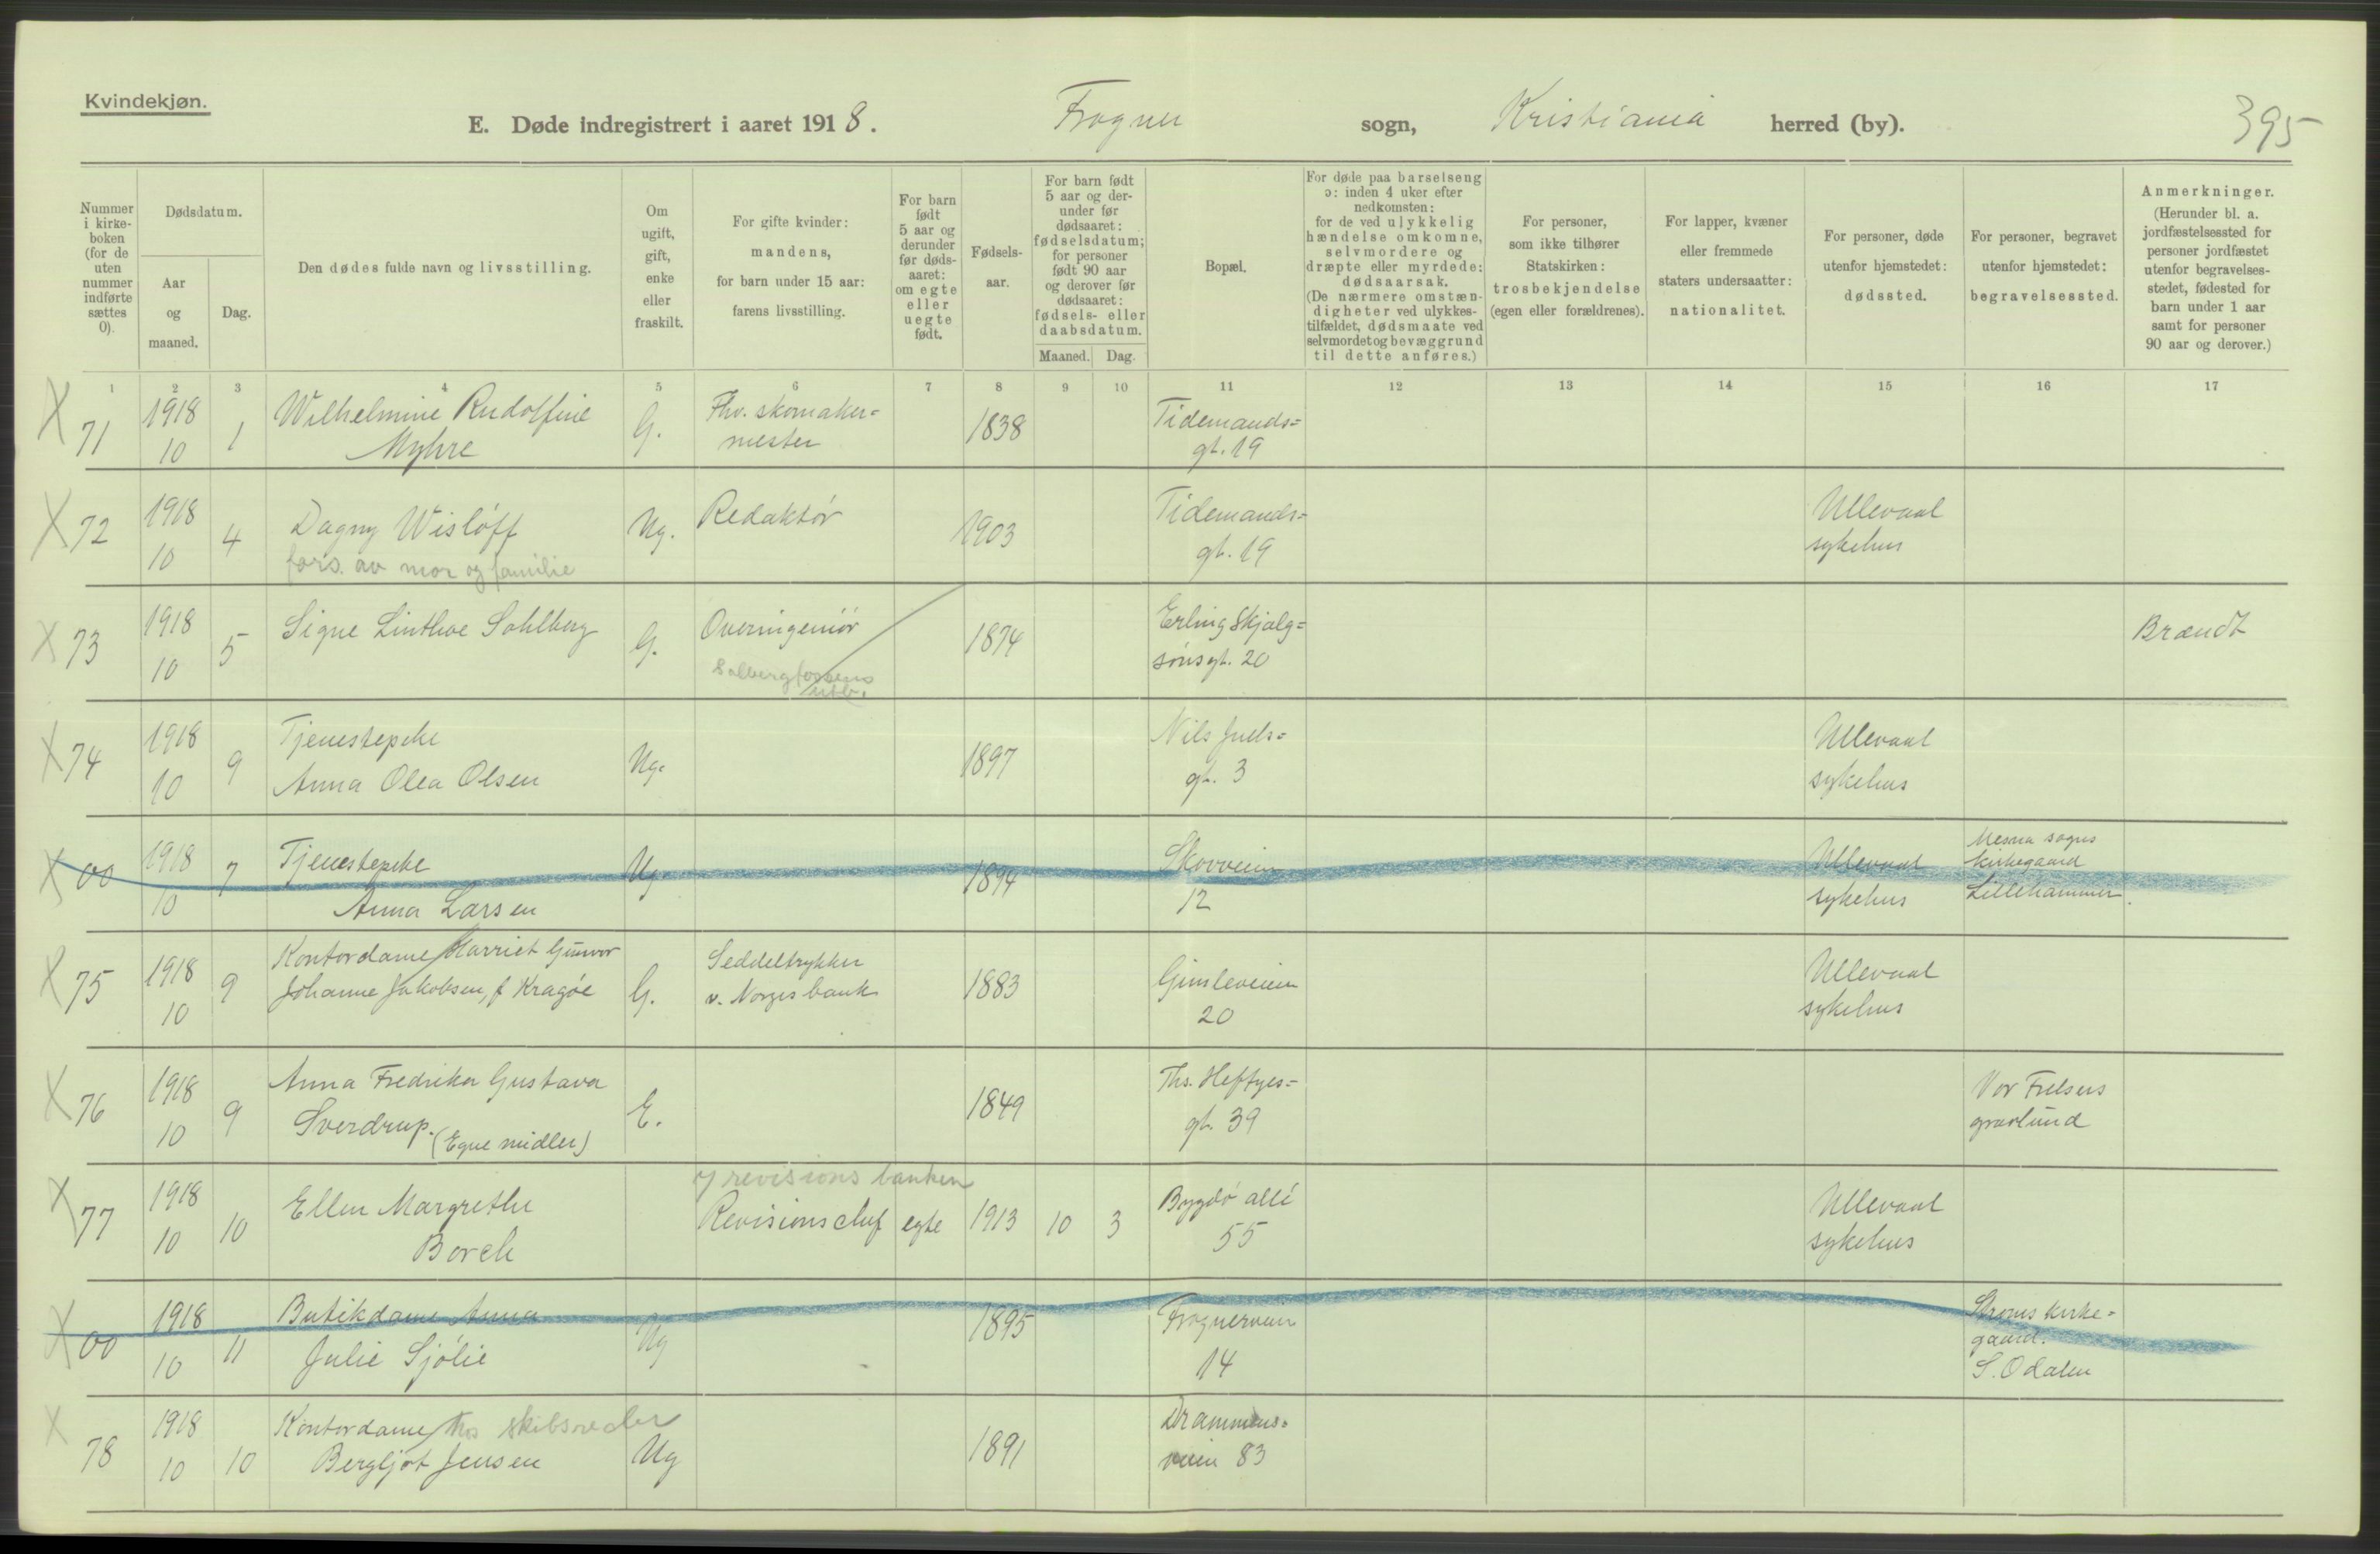 Kvindekjøn.
E. Døde indregistrert i aaret 1918. Frogner sogn, Kristiania herred (by). 395
Nummer i kirkeboken (for de uten nummer indførte sættes 0).
Dødsdatum.
Aar og maaned.
Dag.
Den dødes fulde navn og livsstilling.
Om ugift, gift, enke eller fraskilt.
For gifte kvinder: mandens, for barn under 15 aar: farens livsstilling.
For barn født 5 aar og derunder før dødsaaret: om egte eller uegte født.
Fødselsaar.
For barn født 5 aar og derunder før dødsaaret: fødselsdatum; for personer født 90 aar og derover før dødsaaret: fødsels- eller daabsdatum.
Maaned. Dag.
Bopæl.
For døde paa barselseng ɔ: inden 4 uker efter nedkomsten: for de ved ulykkelig hændelse omkomne, selvmordere og dræpte eller myrdede: dødsaarsak. (De nærmere omstændigheter ved ulykkestilfældet, dødsmaate ved selvmordet og bevæggrund til dette anføres.)
For personer, som ikke tilhører Statskirken: trosbekjendelse (egen eller forældrenes).
For lapper, kvæner eller fremmede staters undersaatter: nationalitet.
For personer, døde utenfor hjemstedet: dødssted.
For personer, begravet utenfor hjemstedet: begravelsessted.
Anmerkninger. (Herunder bl. a. jordfæstelsessted for personer jordfæstet utenfor begravelsesstedet, fødested for barn under 1 aar samt for personer 90 aar og derover.)
1 2 3 4 5 6 7 8 9 10 11 12 13 14 15 16 17
X 71 1918 10 1 Wilhelmine Rudolfine Myhre G. Fhv. skomakermester 1838 Tidemands=gt. 19
X 72 1918 10 4 Dagny Wisløff Ug. Redaktør 1903 Tidemands=gt. 19 Ullevaal sykehus
fors. av mor og familie
X 73 1918 10 5 Signe Linthoe Sahlberg G. Overingeniør 1874 Erling Skjalg=sønsgt. 20 Brændt
Solbergfossens utb.
X 74 1918 10 9 Tjenestepike Anna Olea Olsen Ug. 1897 Nils Juels=gt. 3 Ullevaal sykehus
X 00 1918 10 7 Tjenestepike Anna Larsen Ug. 1894 Skovveien 12 Ullevaal sykehus Mesna sogns kirkegaard Lillehammer.
X 75 1918 10 9 Kontordame Harriet Gunvor Johanne Jakobsen, f. Kragøe G. Seddeltrykker v. Norges bank 1883 Gimleveien 20 Ullevaal sykehus
X 76 1918 10 9 Anna Fredrika Gustava Sverdrup. (Egne midler) E. 1849 Ths. Heftyes=gt. 39 Vor Frelsers gravlund
X 77 1918 10 10 Ellen Margrethe Borch Revisionschef egte 1913 10 3 Bygdø allé 55 Ullevaal sykehus
revisionsbanken
X 00 1918 10 11 Butikdame Anna Julie Sjølie Ug 1895 Frognerveien 14 Strøms kirke=gaard. S. Odalen
X 78 1918 10 10 Kontordame hos skibsreder Bergljot Jensen Ug 1891 Drammens=veien 83